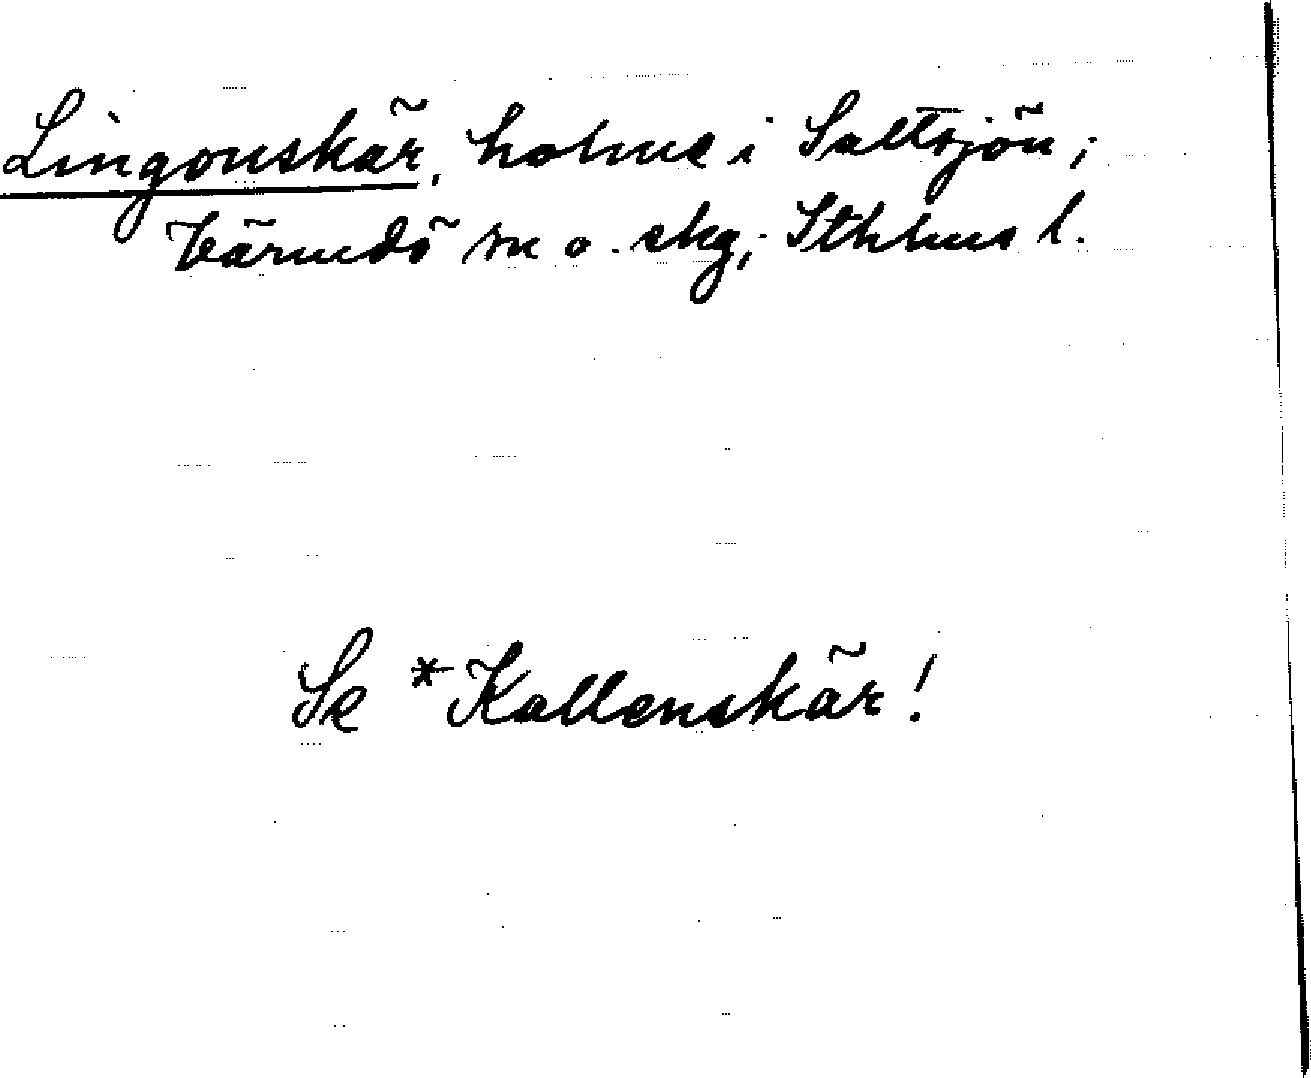 Lingonskär, holme i Saltsjön;
Värmdö sn o. skg, Sthlms l.
Se *Kallenskär!